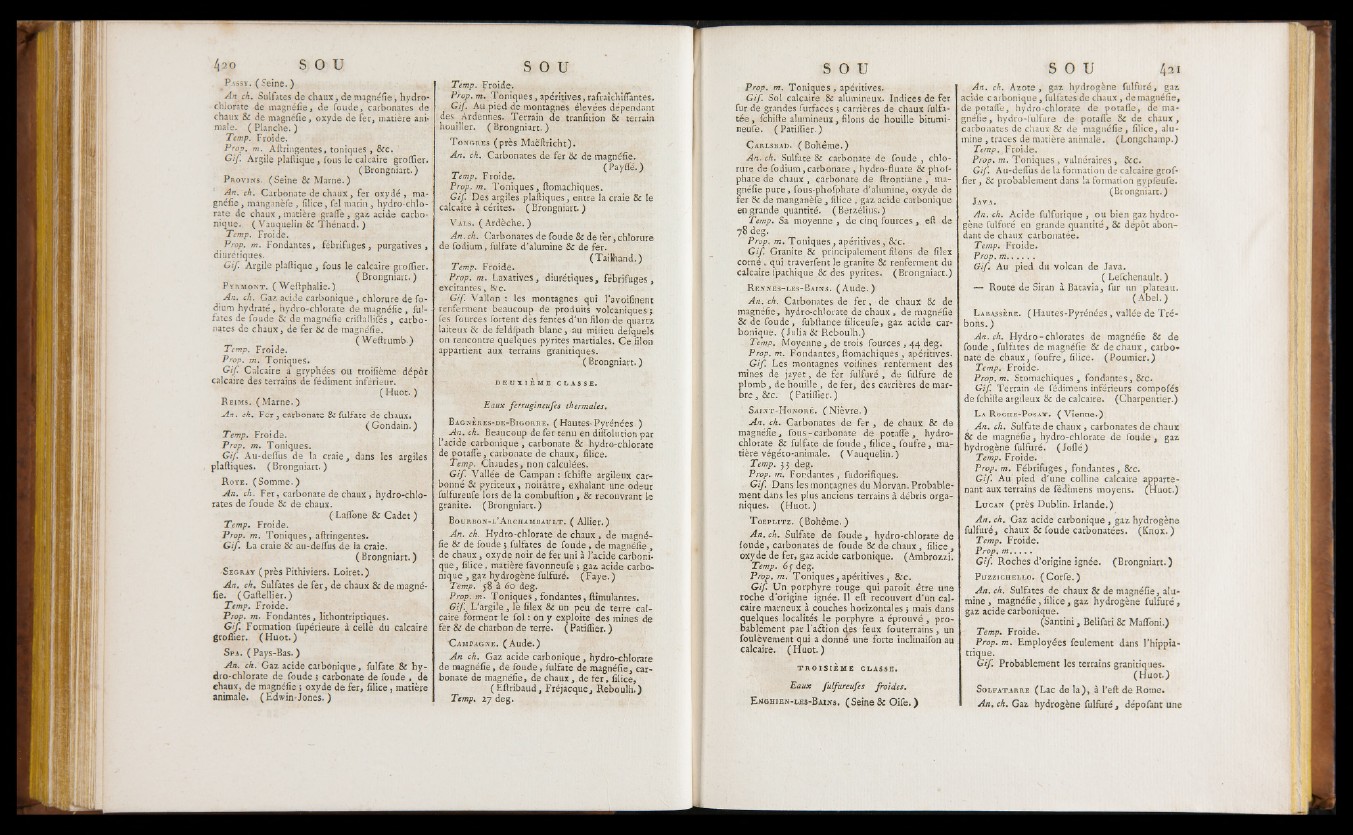 420 S O U
PASSY. (Seine.)
An ch. Sulfates de chaux, de magnéſie, hydro-
chlorate de magnéſie, de ſoude, carbonates de
chaux & de magnéſie, oxyde de fer, matière ani-
male. (Planche.)
Temp. Froide.
Prop. m. Aſtringentes, toniques, &c.
Giſ. Argile plaſtique, ſous le calcaire groſſier.
(Brongniart.)
PROVINS. (Seine & Marne.)
An. ch. Carbonate de chaux, fer oxydé, ma-
gnéſie, manganèſe, ſilice, ſel marin, hydro-chlo-
rate de chaux, matière graſſe, gaz acide carbo-
nique. (Vauquelin & Thénard.)
Temp. Froide.
Prop. m. Fondantes, fébrifuges, purgatives,
diurétiques.
Giſ. Argile plaſtique, ſous le calcaire groſſier.
(Brongniart.)
PYRMONT. (Weſtphalie.)
An. ch. Gaz acide carbonique, chlorure de ſo-
dium hydraté, hydro-chlorate de magnéſie, ſul-
fates de ſoude & de magnéſie criſtalliſés, carbo-
nates de chaux, de fer & de magnéſie.
(Weſtrumb.)
Temp. Froide.
Prop. m. Toniques.
Giſ. Calcaire à gryphées ou troiſième dépôt
calcaire des terrains de ſédiment inférieur.
(Huot.)
REIMS. (Marne.)
An. ch. Fer, carbonate & ſulfate de chaux.
(Gondain.)
Temp. Froide.
Prop. m. Toniques.
Giſ. Au-deſſus de la craie, dans les argiles
plaſtiques. (Brongniart.)
ROYE. (Somme.)
An. ch. Fer, carbonate de chaux, hydro-chlo-
rates de ſoude & de chaux.
(Laſſone & Cadet)
Temp. Froide.
Prop. m. Toniques, aſtringentes.
Giſ. La craie & au-deſſus de la craie.
(Brongniart.)
SEGRAY (près Pithiviers. Loiret.)
An. ch. Sulfates de fer, de chaux & de magné-
ſie. (Gaſtellier.)
Temp. Froide.
Prop. m. Fondantes, lithontriptiques.
Giſ. Formation ſupérieure à celle du calcaire
groſſier. (Huot.)
SPA. (Pays-Bas.)
An. ch. Gaz acide carbonique, ſulfate & hy-
dro-chlorate de ſoude; carbonate de ſoude, de
chaux, de magnéſie; oxyde de fer, ſilice, matière
animale. (Edwin-Jones.)
S O U
Temp. Froide.
Prop. m. Toniques, apéritives, rafraîchiſſantes.
Giſ. Au pied de montagnes élevées dépendant
des Ardennes. Terrain de tranſition & terrain
houiller. (Brongniart.)
TONGRES (près Maëſtricht).
An. ch. Carbonates de fer & de magnéſie.
(Payſſé.)
Temp. Froide.
Prop. m. Toniques, ſtomachiques.
Giſ. Des argiles plaſtiques, entre la craie & le
calcaire à cérites. (Brongniart.)
VALS. (Ardèche.)
An. ch. Carbonates de ſoude & de fer, chlorure
de ſodium, ſulfate d'alumine & de fer.
(Tailhand.)
Temp. Froide.
Prop. m. Laxatives, diurétiques, fébrifuges,
excitantes, &c.
Giſ. Vallon : les montagnes qui l'avoiſinent
renferment beaucoup de produits volcaniques;
ſes ſources ſortent des fentes d'un filon de quartz
laiteux & de feldſpath blanc, au milieu deſquels
on rencontre quelques pyrites martiales. Ce filon
appartient aux terrains granitiques.
(Brongniart.)
DEUXIÈME CLASSE.
Eaux ferrugineuſes thermales.
BAGNÈRES-DE-BIGORRE. (Hautes-Pyrénées)
An. ch. Beaucoup de fer tenu en diſſolution par
l'acide carbonique, carbonate & hydro-chlorate
de potaſſe, carbonate de chaux, ſilice.
Temp. Chaudes, non calculées.
Giſ. Vallée de Campan : ſchiſte argileux car-
bonné & pyriteux, noirâtre, exhalant une odeur
ſulfureuſe lors de la combuſtion, & recouvrant le
granite. (Brongniart.)
BOURBON-L'ARCHAMBAULT. (Allier.)
An. ch. Hydro-chlorate de chaux, de magné-
ſie & de ſoude; ſulfates de ſoude, de magnéſie,
de chaux, oxyde noir de fer uni à l'acide carboni-
que, ſilice, matière ſavonneuſe; gaz acide carbo-
nique, gaz hydrogène ſulfuré. (Faye.)
Temp. 58 à 60 deg.
Prop. m. Toniques, fondantes, ſtimulantes.
Giſ. L'argile, le ſilex & un peu de terre cal-
caire forment le ſol : on y exploite des mines de
fer & de charbon de terre. (Patiſſier.)
CAMPAGNE. (Aude.)
An ch. Gaz acide carbonique, hydro-chlorare
de magnéſie, de ſoude, ſulfate de magnéſie, car-
bonate de magnéſie, de chaux, de fer, ſilice,
(Eſtribaud, Fréjacque, Reboulh.)
Temp. 27 deg.
S O U
Prop. m. Toniques, apéritives.
Giſ. Sol calcaire & alumineux. Indices de fer
ſur de grandes ſurfaces; carrières de chaux ſulfa-
tée, ſchiſte alumineux, filons de houille bitumi-
neuſe. (Patiſſier.)
CARLSBAD. (Bohême.)
An. ch. Sulfate & carbonate de ſoude, chlo-
rure de ſodium, carbonate, hydro-fluate & phoſ-
phate de chaux, carbonate de ſtrontiane, ma-
gnéſie pure, ſous-phoſphate d'alumine, oxyde de
fer & de manganèſe, ſilice, gaz acide carbonique
en grande quantité. (Berzélius.)
Temp. Sa moyenne, de cinq ſources, eſt de
78 deg.
Prop. m. Toniques, apéritives, &c.
Giſ. Granite & principalement filons de ſilex
corné, qui traverſent le granite & renferment du
calcaire ſpathique & des pyrites. (Brongniart.)
RENNES-LES-BAINS. (Aude.)
An. ch. Carbonates de fer, de chaux & de
magnéſie, hydro-chlorate de chaux, de magnéſie
& de ſoude, ſubſtance ſiliceuſe, gaz acide car-
bonique. (Julia & Reboulh.)
Temp. Moyenne, de trois ſources, 44 deg.
Prop. m. Fondantes, ſtomachiques, apéritives.
Giſ. Les montagnes voiſines renferment des
mines de jayet, de fer ſulfuré, de ſulfure de
plomb, de houille, de fer, des carrières de mar-
bre, &c. (Patiſſier.)
SAINT-HONORÉ. (Nièvre.)
An. ch. Carbonates de fer, de chaux & de
magnéſie, ſous-carbonate de potaſſe, hydro-
chlorate & ſulfate de ſoude, ſilice, ſoufre, ma-
tière végéto-animale. (Vauquelin.)
Temp. 33 deg.
Prop. m. Fondantes, ſudorifiques.
Giſ. Dans les montagnes du Morvan. Probable-
ment dans les plus anciens terrains à débris orga-
niques. (Huot.)
TOEPLITZ. (Bohême.)
An. ch. Sulfate de ſoude, hydro-chlorate de
ſoude, carbonates de ſoude & de chaux, ſilice,
oxyde de fer, gaz acide carbonique. (Ambrozzi.
Temp. 65 deg.
Prop. m. Toniques, apéritives, &c.
Giſ. Un porphyre rouge qui paroît être une
roche d'origine ignée. Il eſt recouvert d'un cal-
caire marneux à couches horizontales; mais dans
quelques localités le porphyre a éprouvé, pro-
bablement par l'action des feux ſouterrains, un
ſoulèvement qui a donné une forte inclinaiſon au
calcaire. (Huot.)
TROISIÈME CLASSE.
Eaux ſulfureuſes froides.
ENGHIEN-LES-BAINS. (Seine & Oiſe.)
S O U 421
An. ch. Azote, gaz hydrogène ſulfuré, gaz
acide carbonique, ſulfates de chaux, de magnéſie,
de potaſſe, hydro-chlorate de potaſſe, de ma-
gnéſie, hydro-ſulfure de potaſſe & de chaux,
carbonates de chaux & de magnéſie, ſilice, alu-
mine, traces de matière animale. (Longchamp.)
Temp. Froide.
Prop. m. Toniques, vulnéraires, &c.
Giſ. Au-deſſus de la formation de calcaire groſ-
ſier, & probablement dans la formation gypſeuſe.
(Brongniart.)
JAVA.
An. ch. Acide ſulfurique, ou bien gaz hydro-
gène ſulfuré en grande quantité, & dépôt abon-
dant de chaux carbonatée.
Temp. Froide.
Prop. m......
Giſ. Au pied du volcan de Java.
(Leſchenault.)
— Route de Siran à Batavia, ſur un plateau.
(Abel.)
LABASSÈRE. (Hautes-Pyrénées, vallée de Tré-
bons.)
An. ch. Hydro-chlorates de magnéſie & de
ſoude, ſulfates de magnéſie & de chaux, carbo-
nate de chaux, ſoufre, ſilice. (Poumier.)
Temp. Froide.
Prop. m. Stomachiques, fondantes, &c.
Giſ. Terrain de ſédimens inférieurs compoſés
de ſchiſte argileux & de calcaire. (Charpentier.)
LA ROCHE-POSAY. (Vienne.)
An. ch. Sulfate de chaux, carbonates de chaux
& de magnéſie, hydro-chlorate de ſoude, gaz
hydrogène ſulfuré. (Joſlé)
Temp. Froide.
Prop. m. Fébrifuges, fondantes, &c.
Giſ. Au pied d'une colline calcaire apparte-
nant aux terrains de ſédimens moyens. (Huot.)
LUCAN (près Dublin. Irlande.)
An. ch. Gaz acide carbonique, gaz hydrogène
ſulfuré, chaux & ſoude carbonatées. (Knox.)
Temp. Froide.
Prop. m.....
Giſ. Roches d'origine ignée. (Brongniart.)
PUZZICHELLO. (Corſe.)
An. ch. Sulfates de chaux & de magnéſie, alu-
mine, magnéſie, ſilice, gaz hydrogène ſulfuré,
gaz acide carbonique.
(Santini, Beliſari & Maſſoni.)
Temp. Froide.
Prop. m. Employées ſeulement dans l'hippia-
trique.
Giſ. Probablement les terrains granitiques.
(Huot.)
SOLFATARRE (Lac de la), à l'eſt de Rome.
An. ch. Gaz hydrogène ſulfuré, dépoſant une